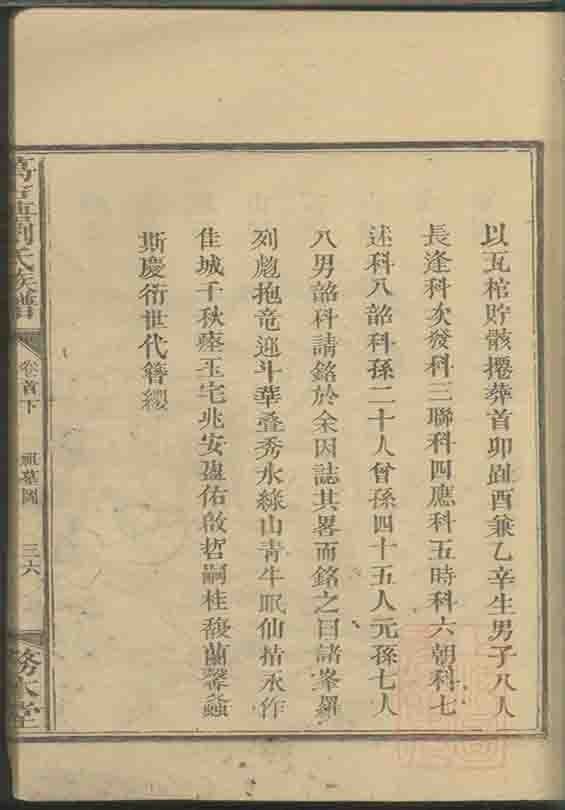 以瓦棺貯骸遷葬首卯趾酉兼乙辛生男子八人
長逢科次發科三聯科四應科五時科六朝科七
述科八韶科孫二十人曾孫四十五人元孫七人
八男韶科請銘於余因誌其畧而銘之曰諸峯羅
列彪抱竜迎斗華叠秀水綠山青牛眠仙指永作
佳城千秋瘞玉宅兆安盈佑啟哲嗣桂馥蘭馨螽
斯慶衍世代簪纓
劉氏族譜
卷首下
祖墓圖
三六
務本堂